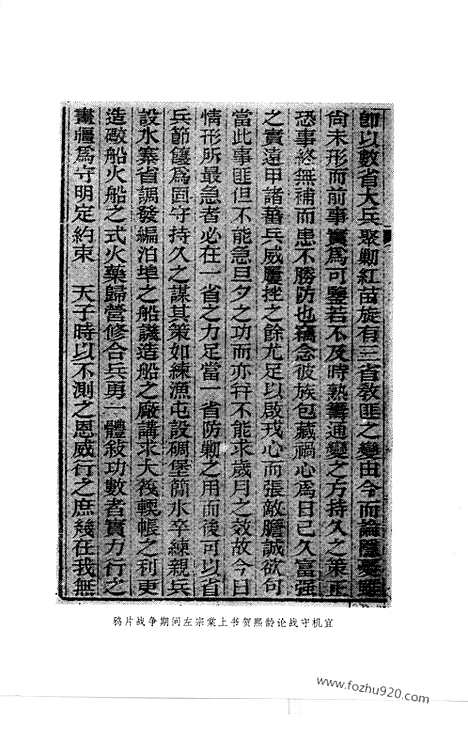 師以數省大兵聚勦紅苗旋有三省教匪之變由今而論隱憂雖
尚未形而前事實爲可鑒若不及時熟籌通變之方持久之策正
恐事終無補而患不勝防也竊念彼族包藏禍心爲日已久富强
之實遠甲諸蕃兵威屢挫之餘尤足以啟戎心而張敵膽誠欲句
當此事匪但不能急旦夕之功而亦幷不能求歲月之效故今日
情形所最急者必在一省之力足當一省防勦之用而後可以省
兵節餽爲固守持久之謀其策如練漁屯設碉堡簡水卒練親兵
設水寨省調發編泊埠之船譏造船之廠講求大筏輭帳之利更
造礮船火船之式火藥歸營修合兵勇一體敘功數者實力行之
畫疆爲守明定約束 天子時以不測之恩威行之庶幾在我無
鸦片战争期间左宗棠上书贺熙龄论战守机宜
www.fozhu920.com